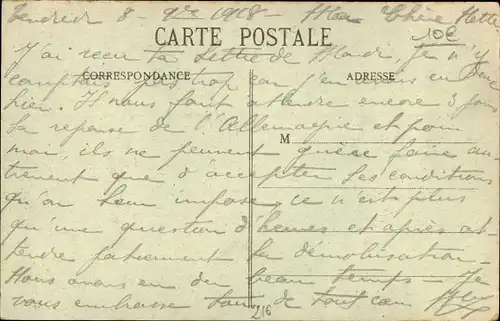 Vendredi 8 - 9bre 1918 - Ma Chère Nette
10€
CARTE POSTALE
J'ai reçu ta lettre de Mardi, je n'y
CORRESPONDANCE
ADRESSE
comptais pas trop car j'en avais eu une
hier. Il nous faut attendre encore 3 jours
la reponse de l'Allemagne et pour
M
moi, ils ne peuvent guère faire au
trement que d'accepter les conditions
qu'on leur impose, ce n'est plus
qu'une question d'heures et après at
tendre patiemment la démobilisation -
Nous avons eu du beau temps - Je
vous embrasse tous de tout cœur
216